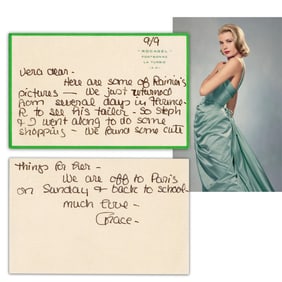 9/9
ROCAGEL
LA TURBIE
Vera dear -
Here are some of Rainier's
pictures — We just returned
from several days in Florence
R to see his tailor - So Steph
& I went along to do some
shopping - We found some cute
things for her -
We are off to Paris
on Sunday & back to school -
much love -
Grace -